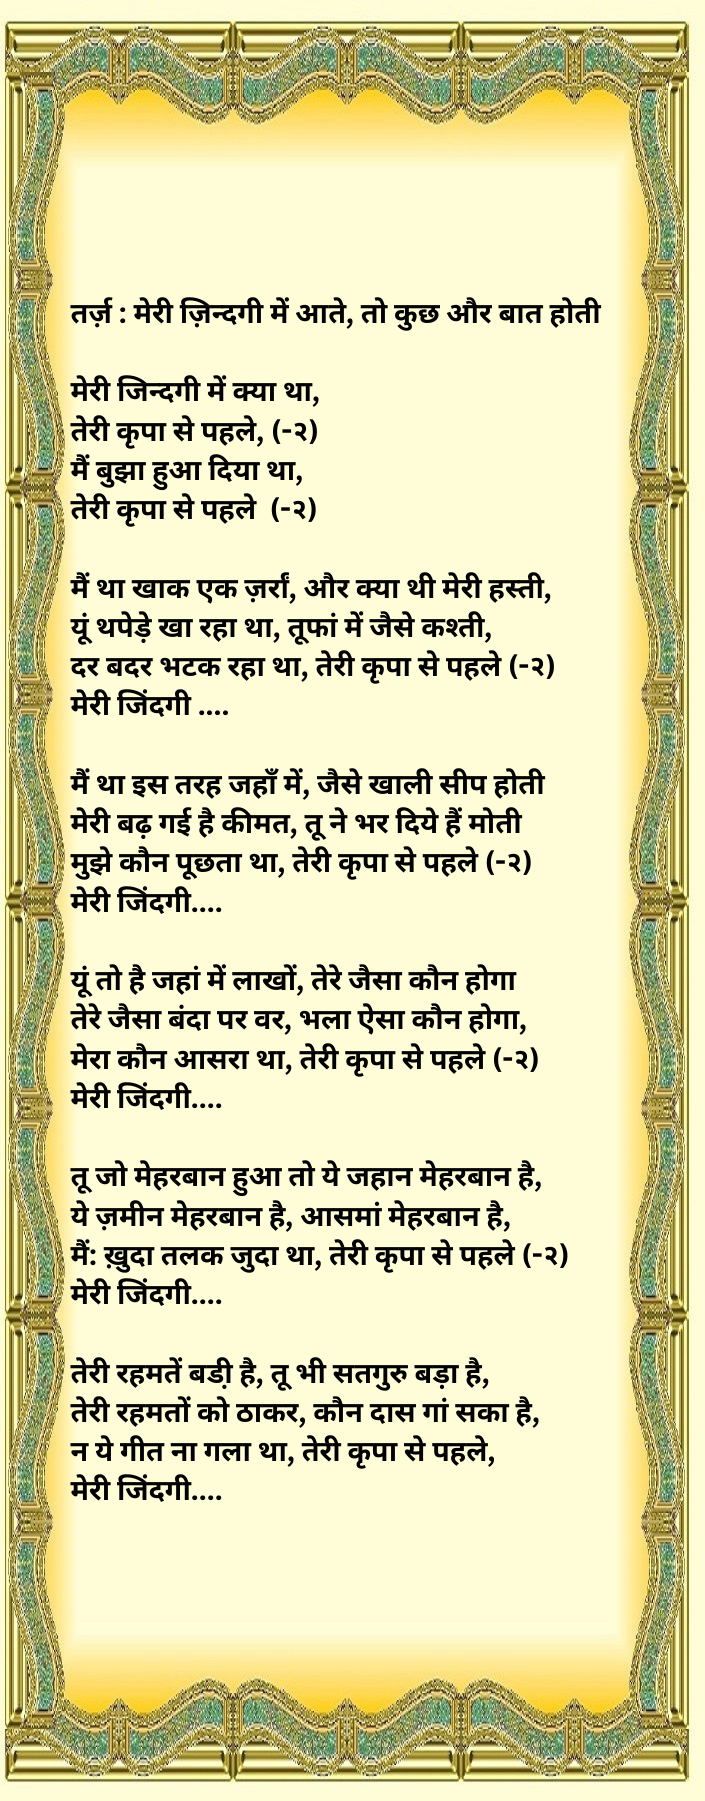 तर्ज़ : मेरी ज़िन्दगी में आते, तो कुछ और बात होती
मेरी जिन्दगी में क्या था,
तेरी कृपा से पहले, (-२)
मैं बुझा हुआ दिया था,
तेरी कृपा से पहले  (-२)
मैं था खाक एक ज़र्रां, और क्या थी मेरी हस्ती,
यूं थपेड़े खा रहा था, तूफां में जैसे कश्ती,
दर बदर भटक रहा था, तेरी कृपा से पहले (-२)
मेरी जिंदगी ....
मैं था इस तरह जहाँ में, जैसे खाली सीप होती
मेरी बढ़ गई है कीमत, तू ने भर दिये हैं मोती
मुझे कौन पूछता था, तेरी कृपा से पहले (-२)
मेरी जिंदगी....
यूं तो है जहां में लाखों, तेरे जैसा कौन होगा
तेरे जैसा बंदा पर वर, भला ऐसा कौन होगा,
मेरा कौन आसरा था, तेरी कृपा से पहले (-२)
मेरी जिंदगी....
तू जो मेहरबान हुआ तो ये जहान मेहरबान है,
ये ज़मीन मेहरबान है, आसमां मेहरबान है,
मैं: ख़ुदा तलक जुदा था, तेरी कृपा से पहले (-२)
मेरी जिंदगी....
तेरी रहमतें बडी़ है, तू भी सतगुरु बड़ा है,
तेरी रहमतों को ठाकर, कौन दास गां सका है,
न ये गीत ना गला था, तेरी कृपा से पहले,
मेरी जिंदगी....